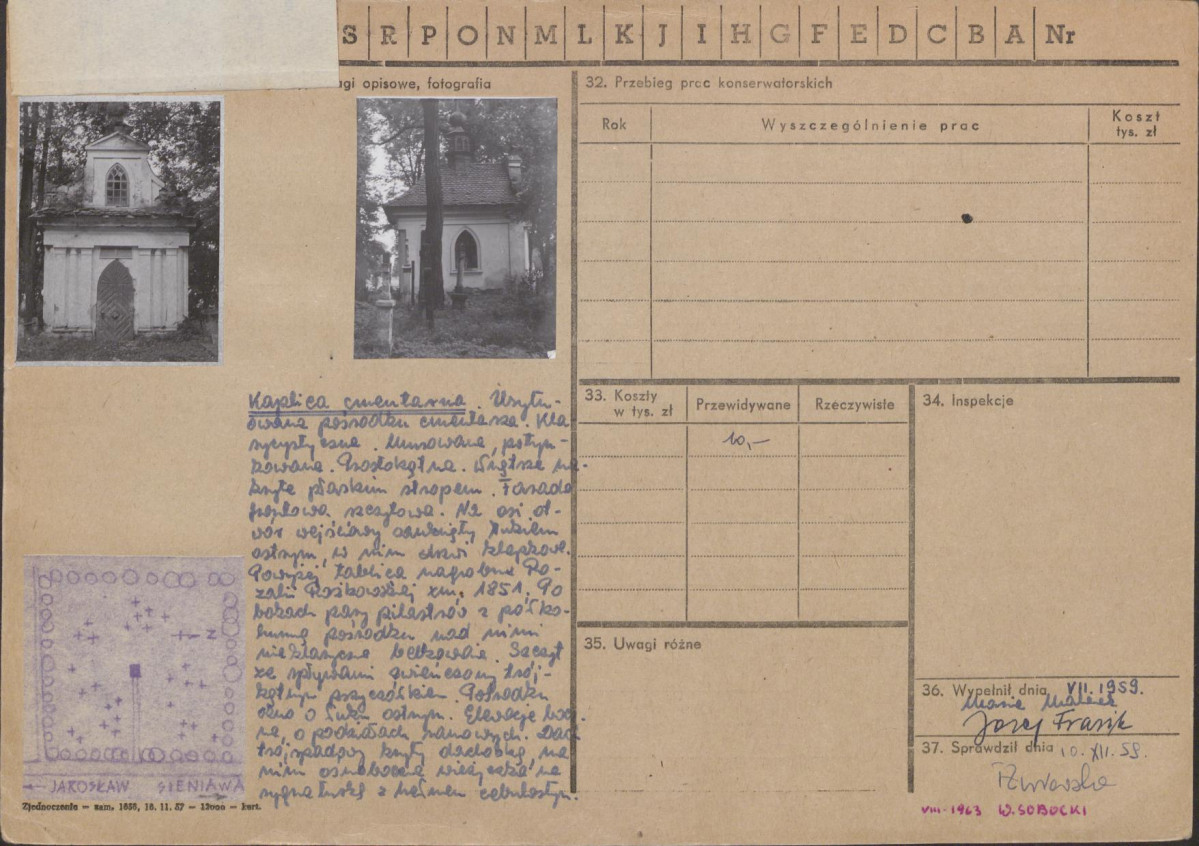 S R P O N M L K J I H G F E D C B A Nr
gi opisowe, fotografia
Kaplica cmentarna. Usytu-
owana pośrodku cmentarza. Kla
sycystyczna. Murowana, potyn-
kowana. Prostokątna. Wnętrze na-
kryte płaskim stropem. Fasada
frontowa szczytowa. Na osi ot-
wór wejściowy zamknięty łukiem
ostrym, w nim drzwi klepkowe.
Powyżej tablica nagrobna Ro-
zalii zm. 1851. Po
bokach pary pilastrów z półko-
lumną pośrodku nad nimi
nieklasyczne belkowanie. Szczyt
ze spływami zwieńczony trój-
kątnym przyczółkiem. Pośrodku
okno o łuku ostrym. Elewacje bocz
ne, o podziałach ramowych. Dach
trójspadowy kryty dachówką, na
nim ośmioboczna wieżyczka na
sygnaturkę z hełmem cebulastym.
N
← JAROSŁAW SIENIAWA
Zjednoczenie — zam. 1655, 16. 11. 57 — 12000 — kart.
32. Przebieg prac konserwatorskich
Rok
Wyszczególnienie prac
Koszt
tys. zł
33. Koszty
w tys. zł
Przewidywane
Rzeczywiste
10,-
34. Inspekcje
35. Uwagi różne
36. Wypełnił dnia VII. 1959.
Józef Frazik
37. Sprawdził dnia 10. XII. 59.
VIII-1963 W. SOBOCKI